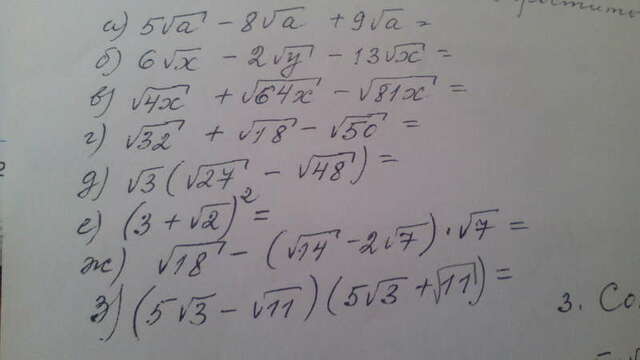 а) 5√a - 8√a + 9√a =
б) 6√x - 2√y - 13√x =
в) √4x + √64x - √81x =
г) √32 + √18 - √50 =
д) √3 (√27 - √48) =
е) (3 + √2)² =
ж) √18 - (√14 - 2√7) · √7 =
з) (5√3 - √11) (5√3 + √11) =
3. Со